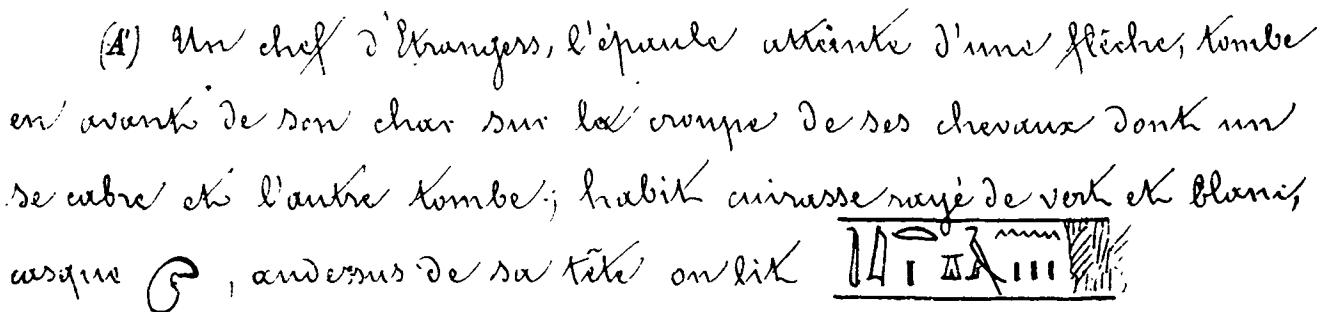 (A') Un chef d'Etrangers, l'épaule atteinte d'une flèche, tombe
en avant de son char sur la croupe de ses chevaux dont un
se cabre et l'autre tombe; habit cuirasse rayé de vert et blanc,
casque , audessus de sa tête on lit